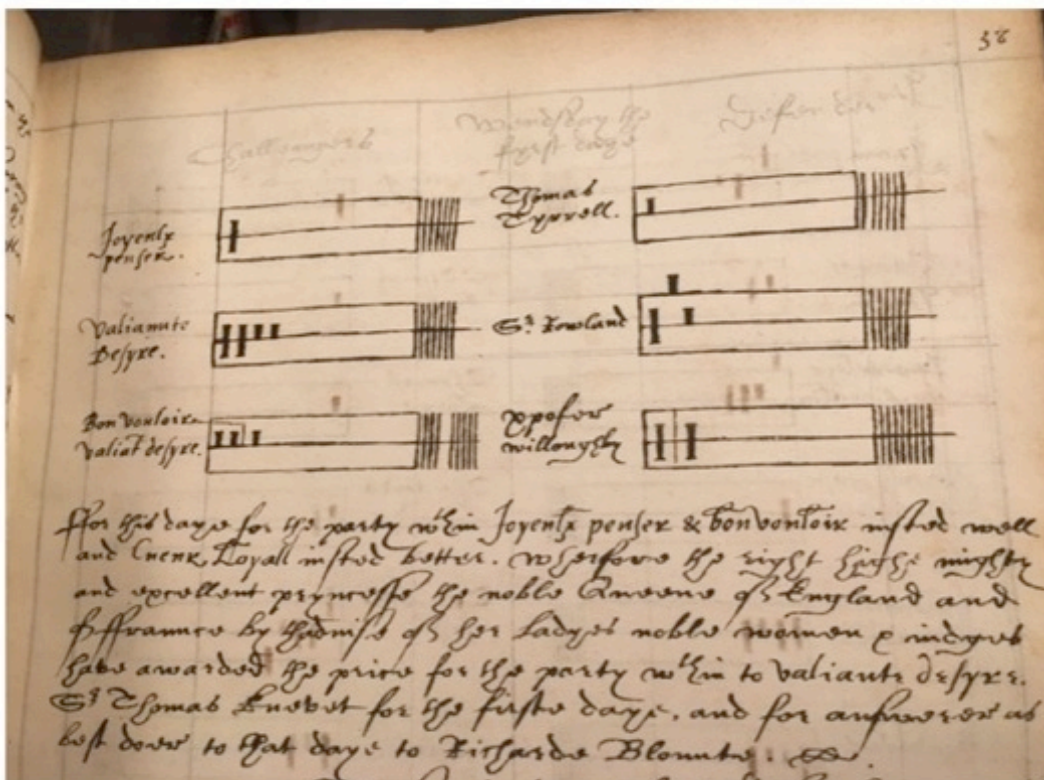 38
Challengers
Wendsday the
fyrst daye
Defenders
Joyenlx
penser.
Thomas
Tyrrell.
Valiaunte
Desyre.
Sr. Rowland
Bon vouloir
valiāt desyre.
xpofer
willoughby
ffor this daye for the party wthin Joyenlx penser & bon vouloir iusted well
and Cuenr Loyall iusted better. wherfore the right highe mighty
and excellent pryncesse the noble Queene of England and
of ffraunce by thadvise of her Ladyes noble women & iudges
have awarded the price for the party wthin to valiante desyre.
Sr Thomas Knevet for the firste daye, and for answerer as
best doer to that daye to Richarde Blounte.